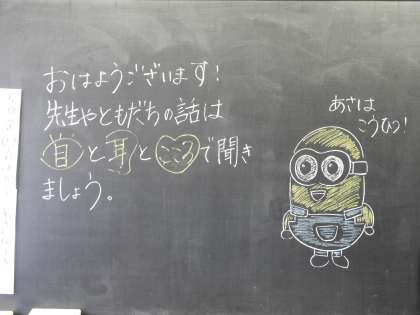 おはようございます!
先生やともだちの話は
目と耳とこころで聞き
ましょう。
あさは
こうひつ!